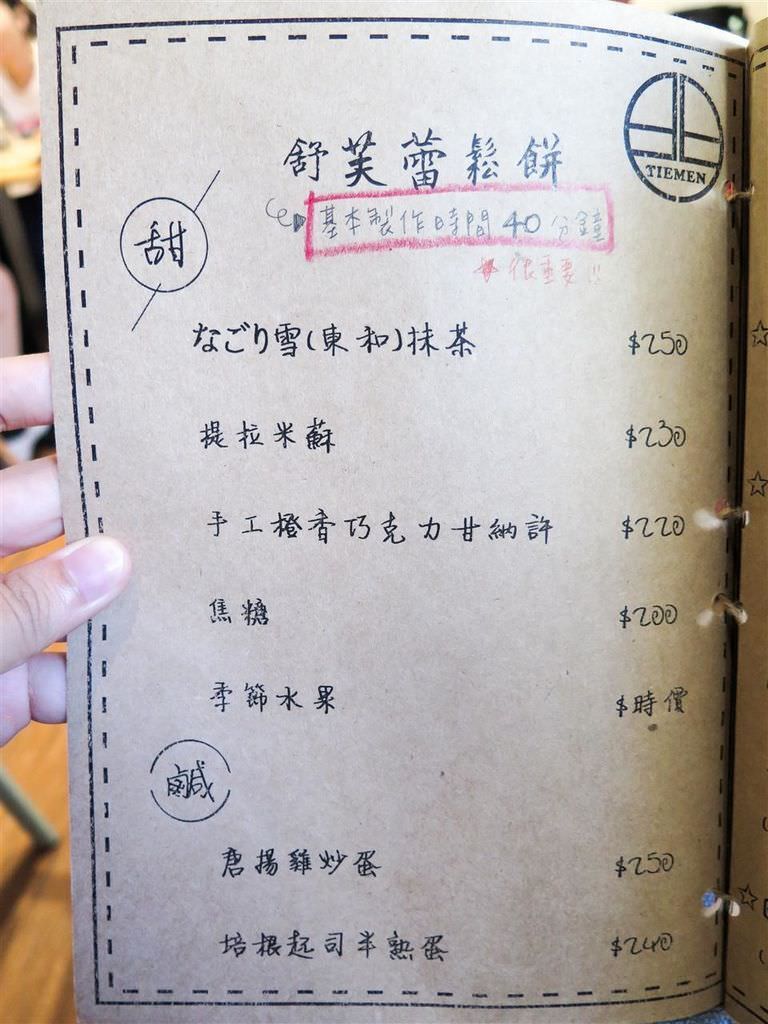 TIEMEN
舒芙蕾鬆餅
基本製作時間 40 分鐘
很重要!!
甜
なごり雪(東和)抹茶 $250
提拉米蘇 $230
手工橙香巧克力甘納許 $220
焦糖 $200
季節水果 $時價
鹹
唐揚雞炒蛋 $250
培根起司半熟蛋 $240